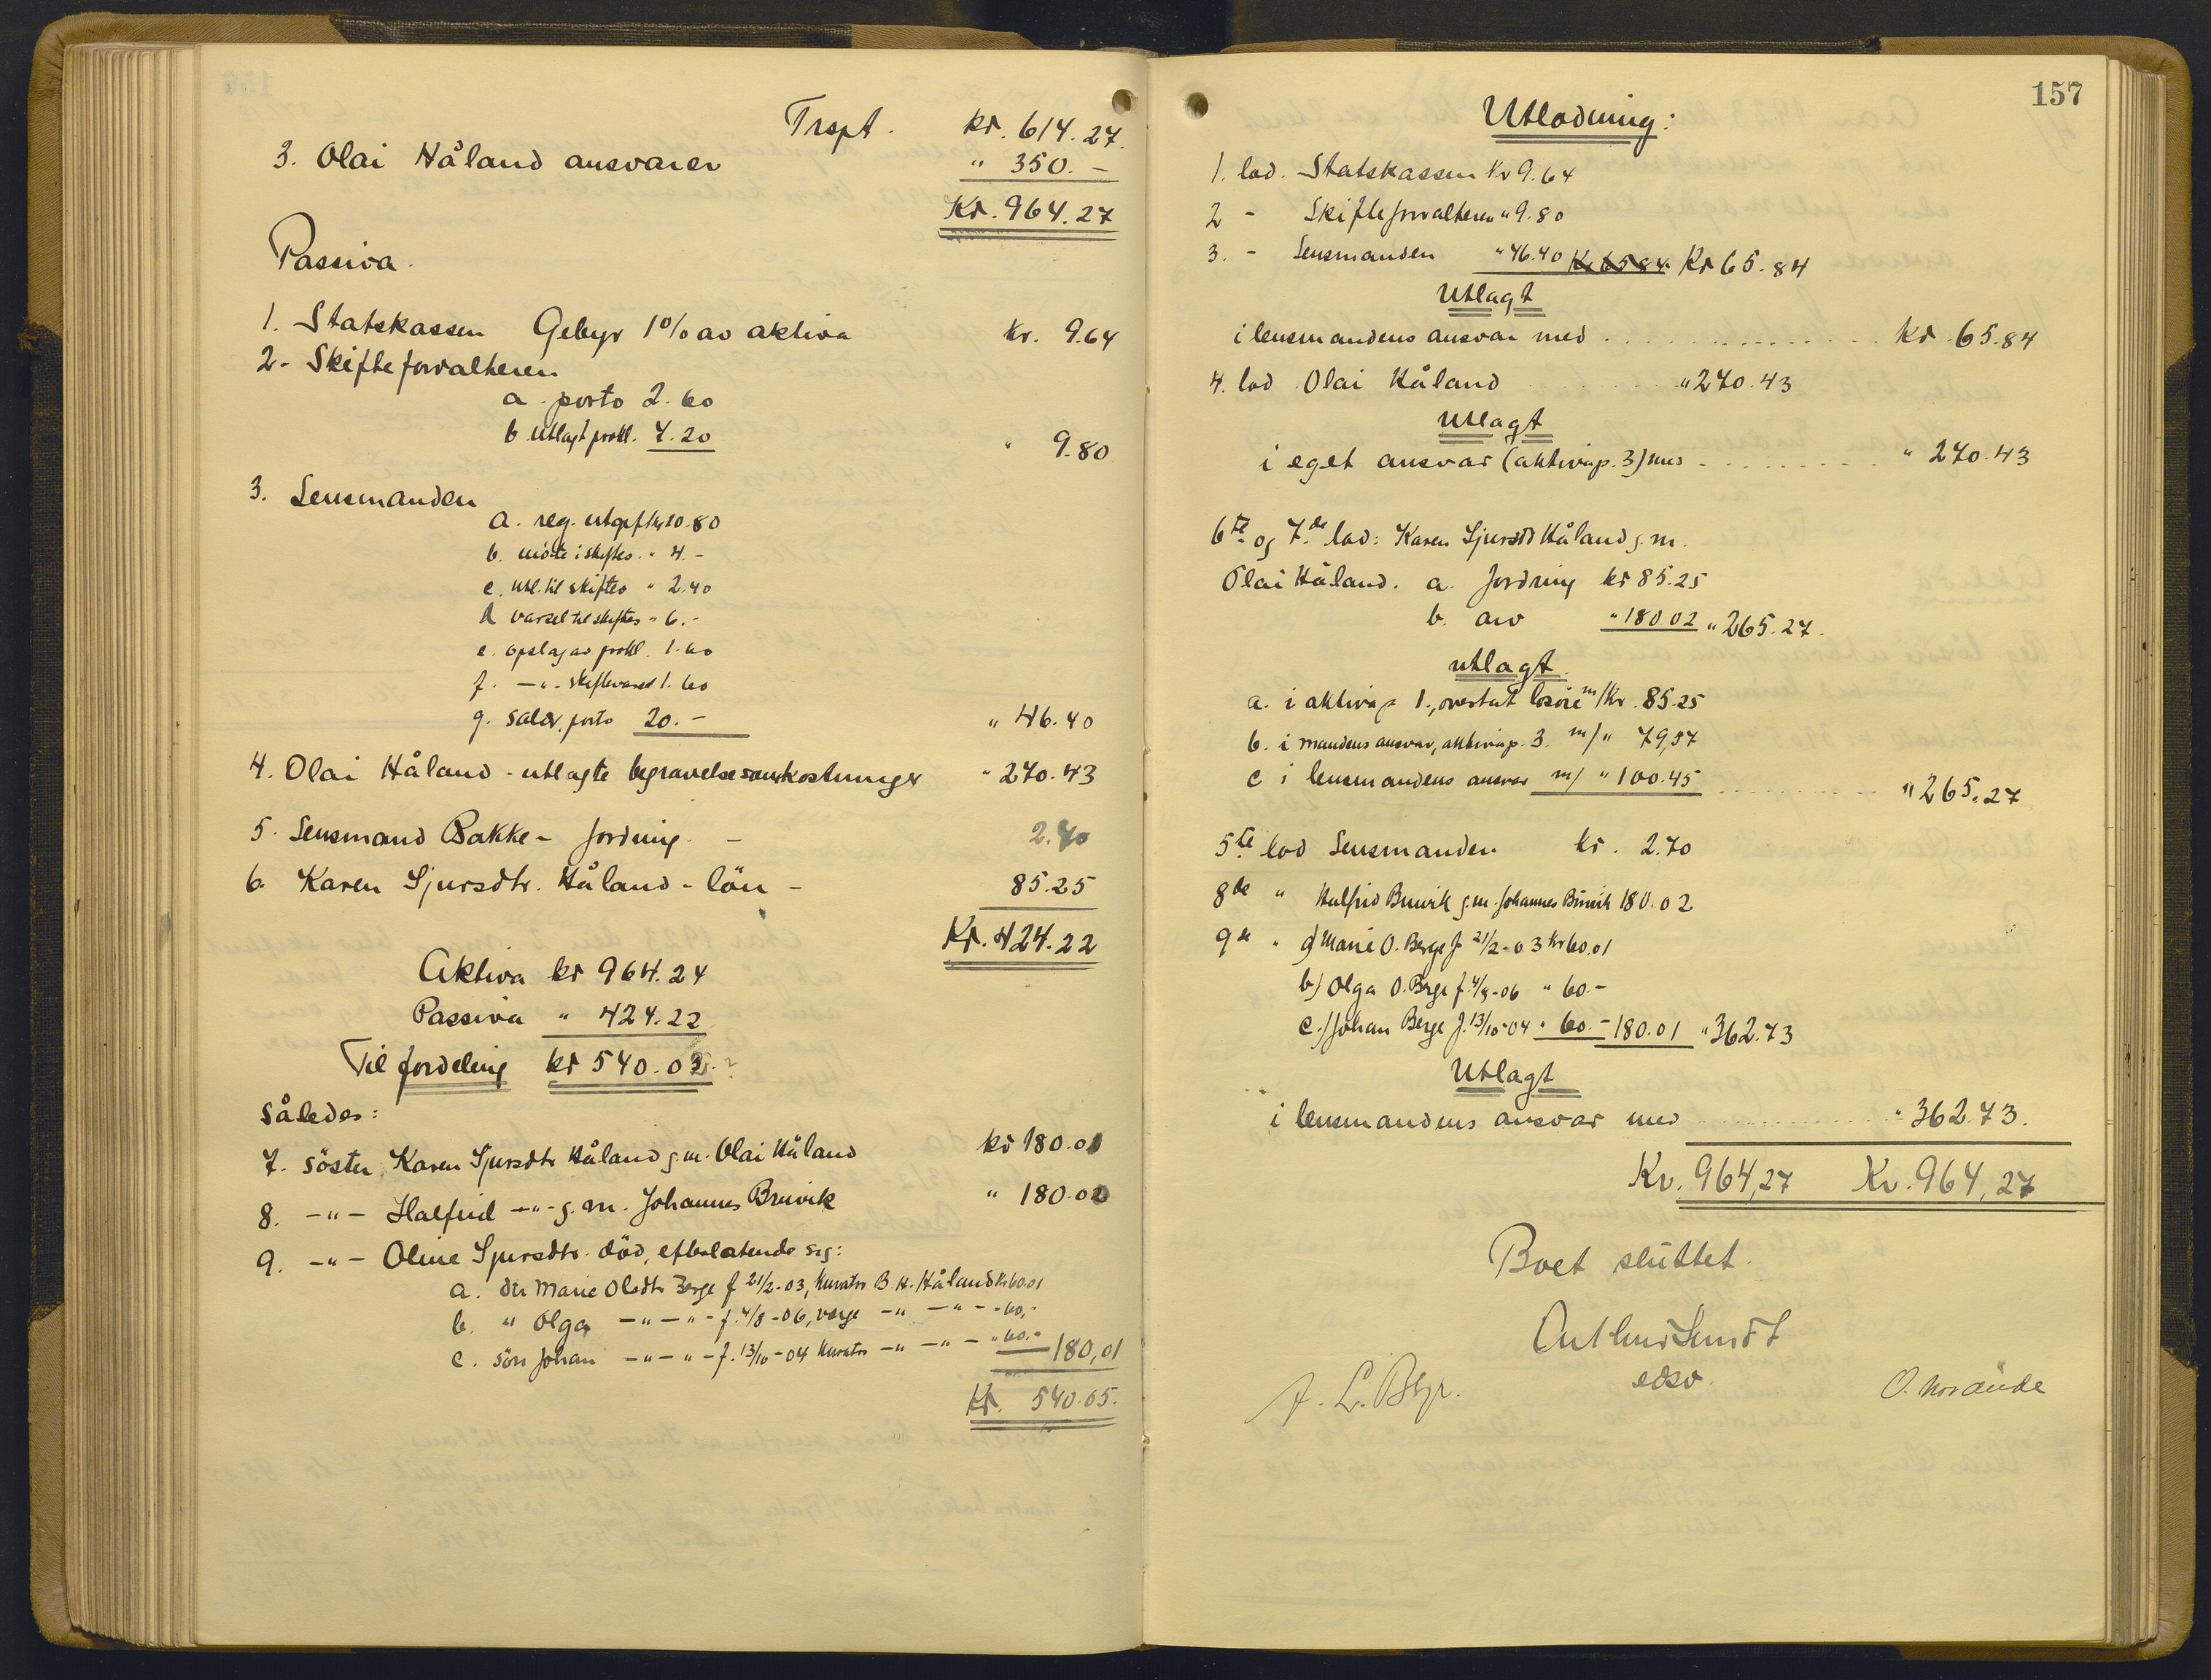 Trspt. kr. 614.27.
3. Olai Håland ansvarer " 350.-
Kr. 964.27
Passiva.
1. Statskassen Gebyr 1% av aktiva kr. 9.64
2- Skifteforvalteren
a. porto 2.60
b. utlagt prokl. 7.20 " 9.80
3. Lensmanden
a. reg. utgift kr 10.80
b. möte i skiftes. " 4.-
c. utl. til skiftes " 2.40
d varsel til skiftes " 6.-
e. opslag av prokl. 1.60
f. -"- skiftevarsel 1.60
g. salær, porto 20.- " 46.40
4. Olai Håland - utlagte begravelsesomkostninger " 270.43
5. Lensmand Bakke - fordring - 2.70
6. Karen Sjursdtr. Håland - lön - 85.25
Kr. 424.22
Aktiva kr 964.27
Passiva " 424.22
Til fordeling kr 540.05
Således:
7. söster Karen Sjursdtr Håland g.m. Olai Håland kr 180.02
8. -"- Halfrid -"- g.m. Johannes Bruvik " 180.02
9. -"- Oline Sjursdtr. död, efterlatende sig:
a. dtr Marie Olsdtr Berge f 21/2-03, kurator B. H. Håland kr 60.01
b. " Olga -"-"- f. 4/8-06, verge -"-"- -60,-
c. sön Johan -"-"- f. 13/10-04 kurator -"-"- " 60.- 180,01
Kr. 540.05.
157
Utlodning:
1. lod. Statskassen kr 9.64
2 - Skifteforvalteren " 9.80
3. - Lensmanden " 46.40 Kr 65.84 Kr 65.84
Utlagt
i lensmandens ansvar med kr. 65.84
4. lod Olai Håland " 270.43
Utlagt
i eget ansvar (aktiva p. 3) med " 270.43
6te og 7de lod: Karen Sjursdtr Håland g.m.
Olai Håland. a. fordring kr 85.25
b. arv " 180 02 " 265.27.
utlagt
a. i aktiva p 1., overtat lösöre m/kr. 85.25
b. i mandens ansvar, aktiva p. 3. m/" 79,57
c i lensmandens ansvar m/ " 100.45 " 265.27
5te lod Lensmanden kr. 2.70
8de " Halfrid Bruvik g.m. Johannes Bruvik 180.02
9de " a) Marie O. Berge f 21/2-03 kr 60.01
b) Olga O. Berge f. 4/8-06 " 60.-
c.) Johan Berge f. 13/10-04 " 60.- 180.01 " 362.73
Utlagt
i lensmandens ansvar med " 362.73.
Kr. 964,27 Kr. 964,27
Boet sluttet.
edsv.